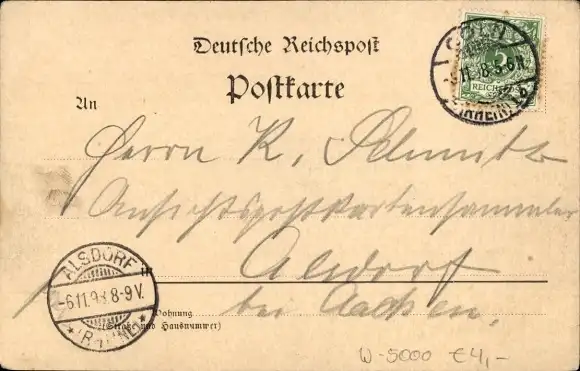 Deutsche Reichspost
Postkarte
An
Herrn K. Schmitz
Ansichtspostkartensammler
in
Alsdorf
bei Aachen.
Wohnung
(Straße und Hausnummer)
CÖLN
11.98.5-6N.
(RHEIN)
5
REICHSPOST
ALSDORF
-6.11.98.8-9V.
(RHEINL)
W-5000 €4,-